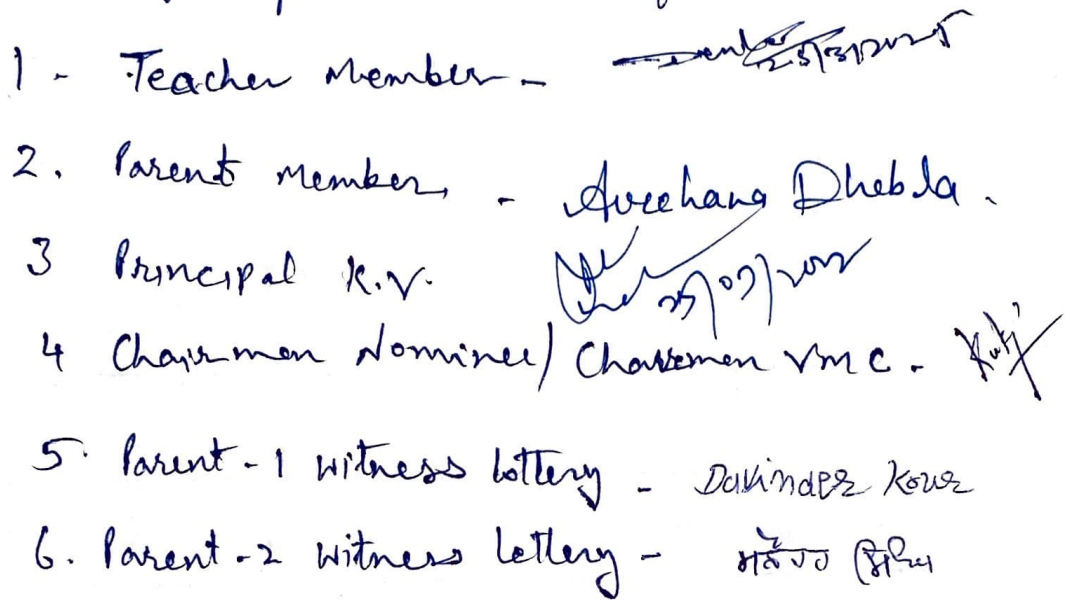 1 - Teacher Member -
2. Parent Member, - Archana Dhebla.
3 Principal K.V. 25/03/2025
4 Chairman Nominee/ Chairman VMC.
5. Parent - 1 witness lottery - Davinder Kour
6. Parent - 2 witness lottery -